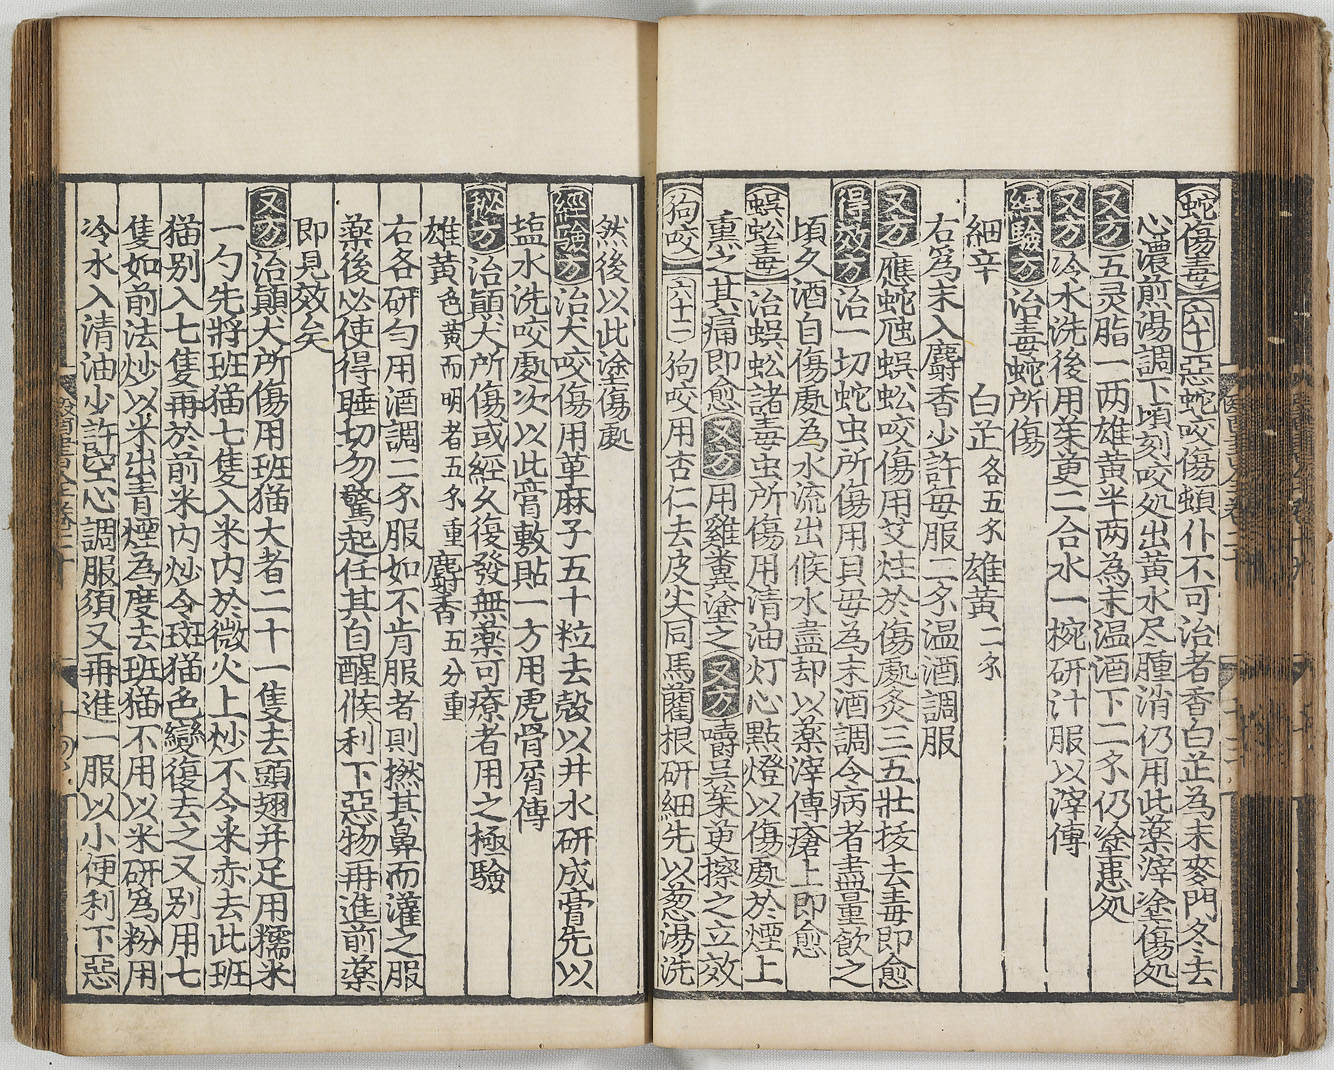 蛇傷毒 六十 惡蛇咬傷頻仆不可治者香白芷為末麥門冬去
心濃煎湯調下頃刻咬処出黄水尽腫消仍用此藥滓塗傷処
又方 五灵脂一两雄黄半两為末温酒下二仒仍塗患処
又方 冷水洗後用茱萸二合水一椀研汁服以滓傅
經驗方 治毒蛇所傷
細辛 白芷各五仒 雄黄二仒
右為末入麝香少許每服二仒温酒調服
又方 應蛇虺蜈蚣咬傷用艾炷於傷處灸三五壯拔去毒即愈
得效方 治一切蛇虫所傷用貝母為末酒調令病者盡量飲之
頃久酒自傷處為水流出候水盡却以藥滓傅瘡上即愈
蜈蚣毒 治蜈蚣諸毒虫所傷用清油灯心點燈以傷處於煙上
熏之其痛即愈 又方 用雞糞塗之 又方 嚼吴茱萸擦之立效
狗咬 六十二 狗咬用杏仁去皮尖同馬藺根研細先以葱湯洗
然後以此塗傷處
經驗方 治犬咬傷用萆麻子五十粒去殻以井水研成膏先以
塩水洗咬處次以此膏敷貼一方用虎骨屑傅
秘方 治顛犬所傷或經久復發無藥可療者用之極驗
雄黄色黄而明者五仒重 麝香五分重
右各研勻用酒調二仒服如不肯服者則撚其鼻而灌之服
藥後必使得睡切勿驚起任其自醒候利下惡物再進前藥
即見效矣
又方 治顛犬所傷用班猫大者二十一隻去頭翅并足用糯米
一勺先將班猫七隻入米内於微火上炒不令米赤去此班
猫别入七隻再於前米内炒令斑猫色變復去之又别用七
隻如前法炒以米出青煙為度去班猫不用以米研為粉用
冷水入清油少許空心調服須又再進一服以小便利下惡